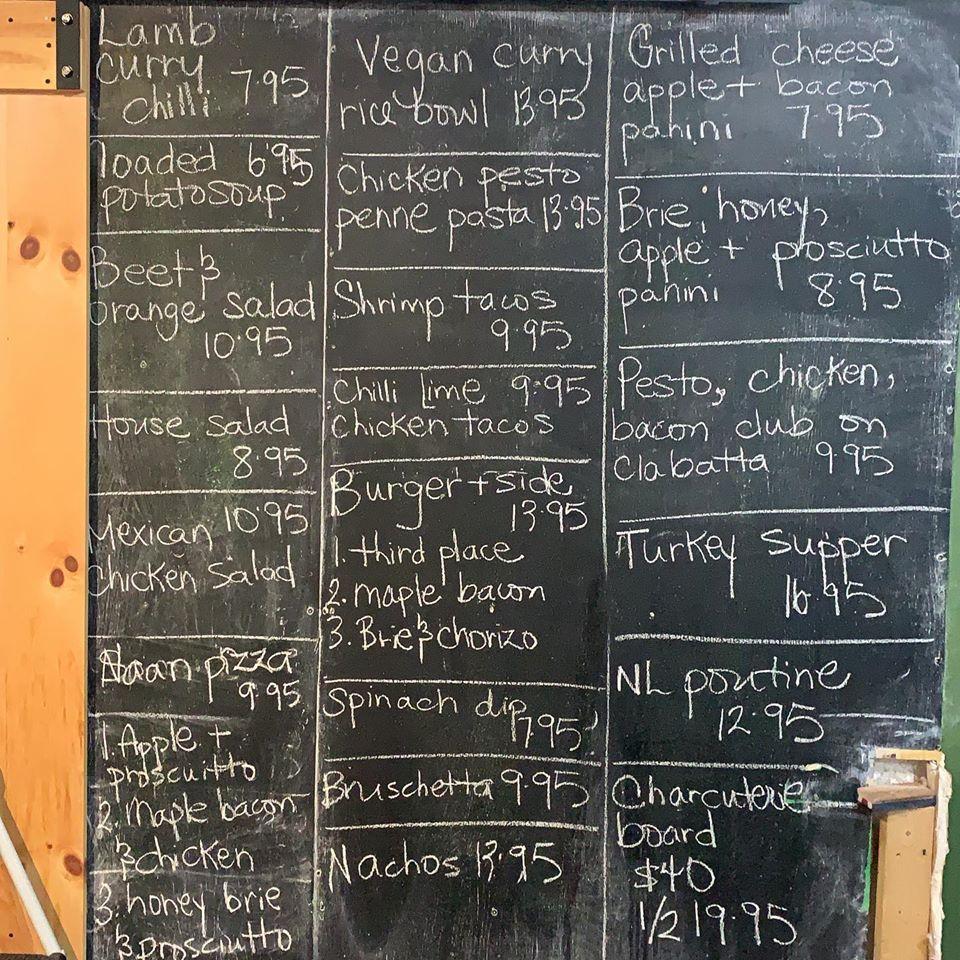 Lamb
curry 7.95
chilli
loaded 6.95
potato soup
Beet &
orange salad
10.95
House salad
8.95
Mexican 10.95
Chicken Salad
Naan pizza
9.95
1. Apple +
proscuitto
2. Maple bacon
& chicken
3. honey brie
& prosciutto
Vegan curry
rice bowl 13.95
Chicken pesto
penne pasta 13.95
Shrimp tacos
9.95
Chilli Lime 9.95
chicken tacos
Burger + side
13.95
1. third place
2. maple bacon
3. Brie & chorizo
Spinach dip
7.95
Bruschetta 9.95
Nachos 13.95
Grilled cheese
apple + bacon
panini 7.95
Brie, honey,
apple + prosciutto
panini 8.95
Pesto, chicken,
bacon club on
Ciabatta 9.95
Turkey Supper
16.95
NL poutine
12.95
Charcuterie
board
$40
1/2 19.95